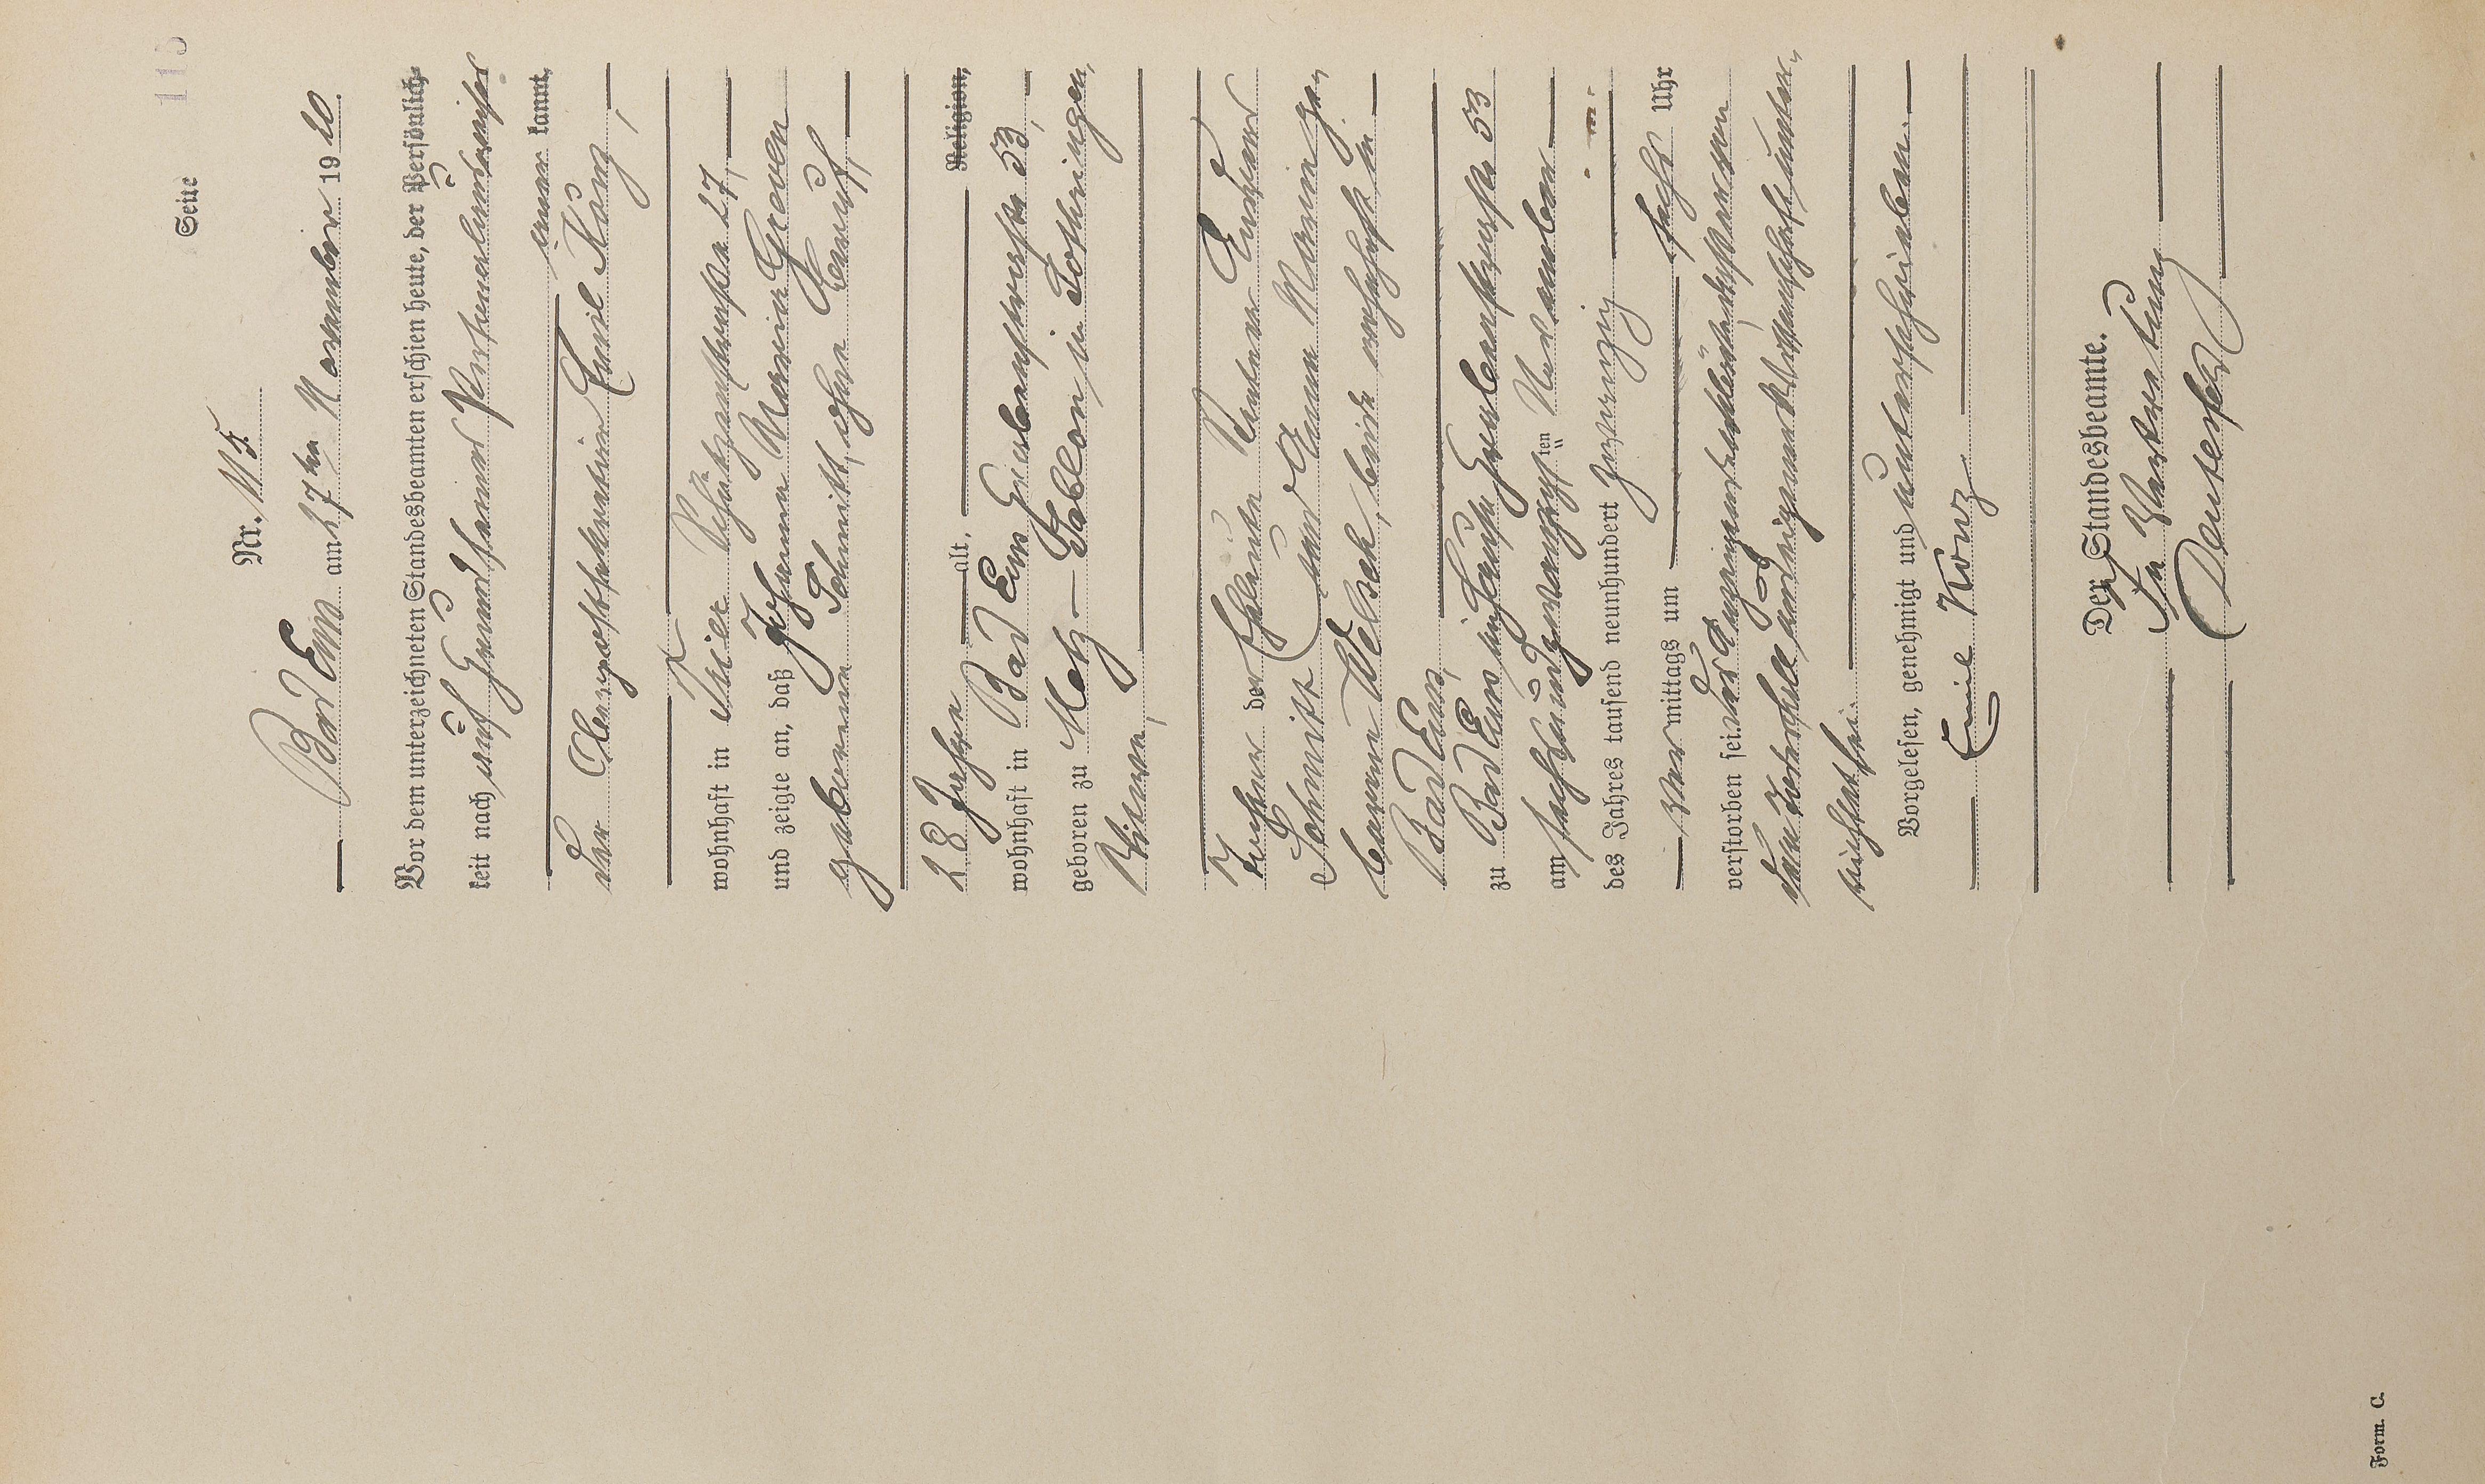 Seite 115
Nr. 115.
Bad Ems am 27ten November 1920.
Vor dem unterzeichneten Standesbeamten erschien heute, der Persönlich-
keit nach auf Grund seines Personalausweises
anerkannt,
der Oberpostsekretär Emil Konz,
wohnhaft in Trier
und zeigte an, daß Johanna Maria Graven
geborene Schmitt, ohne Beruf,
28 Jahre alt, Religion,
wohnhaft in Bad Ems Grabenstraße 53,
geboren zu Metz-Sablon in Lothringen,
Witwe,
Tochter der Eheleute Rentner Eduard
Schmitt und Anna Maria ge-
borene Welsch, beide wohnhaft in
Bad Ems,
zu Bad Ems im Hause Grabenstraße 53
am sechsundzwanzigsten November
des Jahres tausend neunhundert zwanzig
vormittags um sechs Uhr
verstorben sei.
den Sterbefall aus eigener Wissenschaft
sei.
Vorgelesen, genehmigt und unterschrieben.
Emil Konz
Der Standesbeamte.
In Vertretung
Form. C.